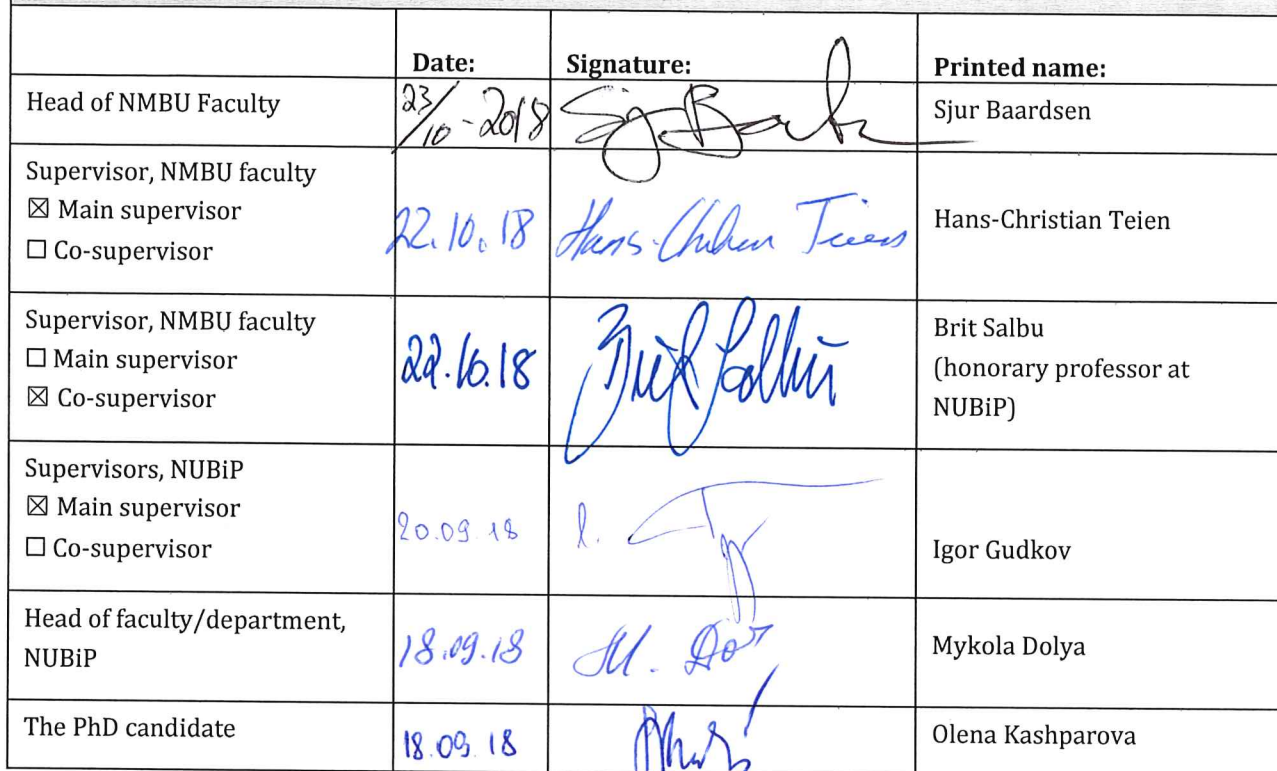 Date: Signature: Printed name:
Head of NMBU Faculty 23/10-2018 Sjur Baardsen
Supervisor, NMBU faculty
☒ Main supervisor
☐ Co-supervisor
22.10.18 Hans-Christian Teien Hans-Christian Teien
Supervisor, NMBU faculty
☐ Main supervisor
☒ Co-supervisor
22.10.18 Brit Salbu Brit Salbu
(honorary professor at
NUBiP)
Supervisors, NUBiP
☒ Main supervisor
☐ Co-supervisor
20.09.18 Igor Gudkov
Head of faculty/department,
NUBiP
18.09.18 Mykola Dolya
The PhD candidate 18.09.18 Olena Kashparova